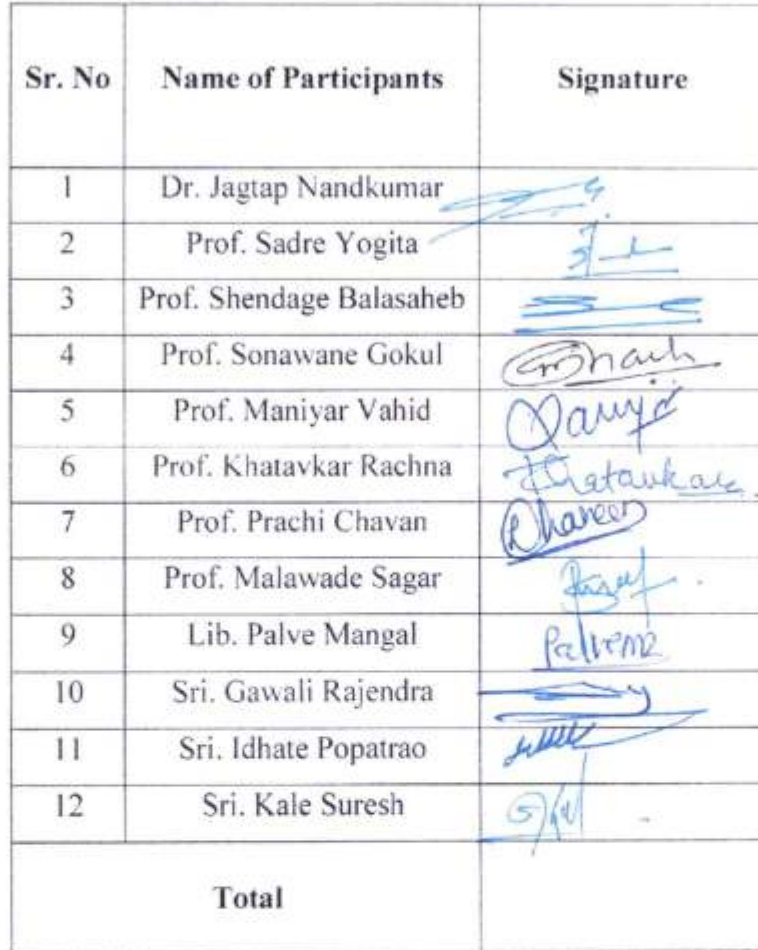 Sr. No Name of Participants Signature
1 Dr. Jagtap Nandkumar
2 Prof. Sadre Yogita
3 Prof. Shendage Balasaheb
4 Prof. Sonawane Gokul
5 Prof. Maniyar Vahid
6 Prof. Khatavkar Rachna Khatavkar
7 Prof. Prachi Chavan
8 Prof. Malawade Sagar
9 Lib. Palve Mangal
10 Sri. Gawali Rajendra
11 Sri. Idhate Popatrao
12 Sri. Kale Suresh
Total